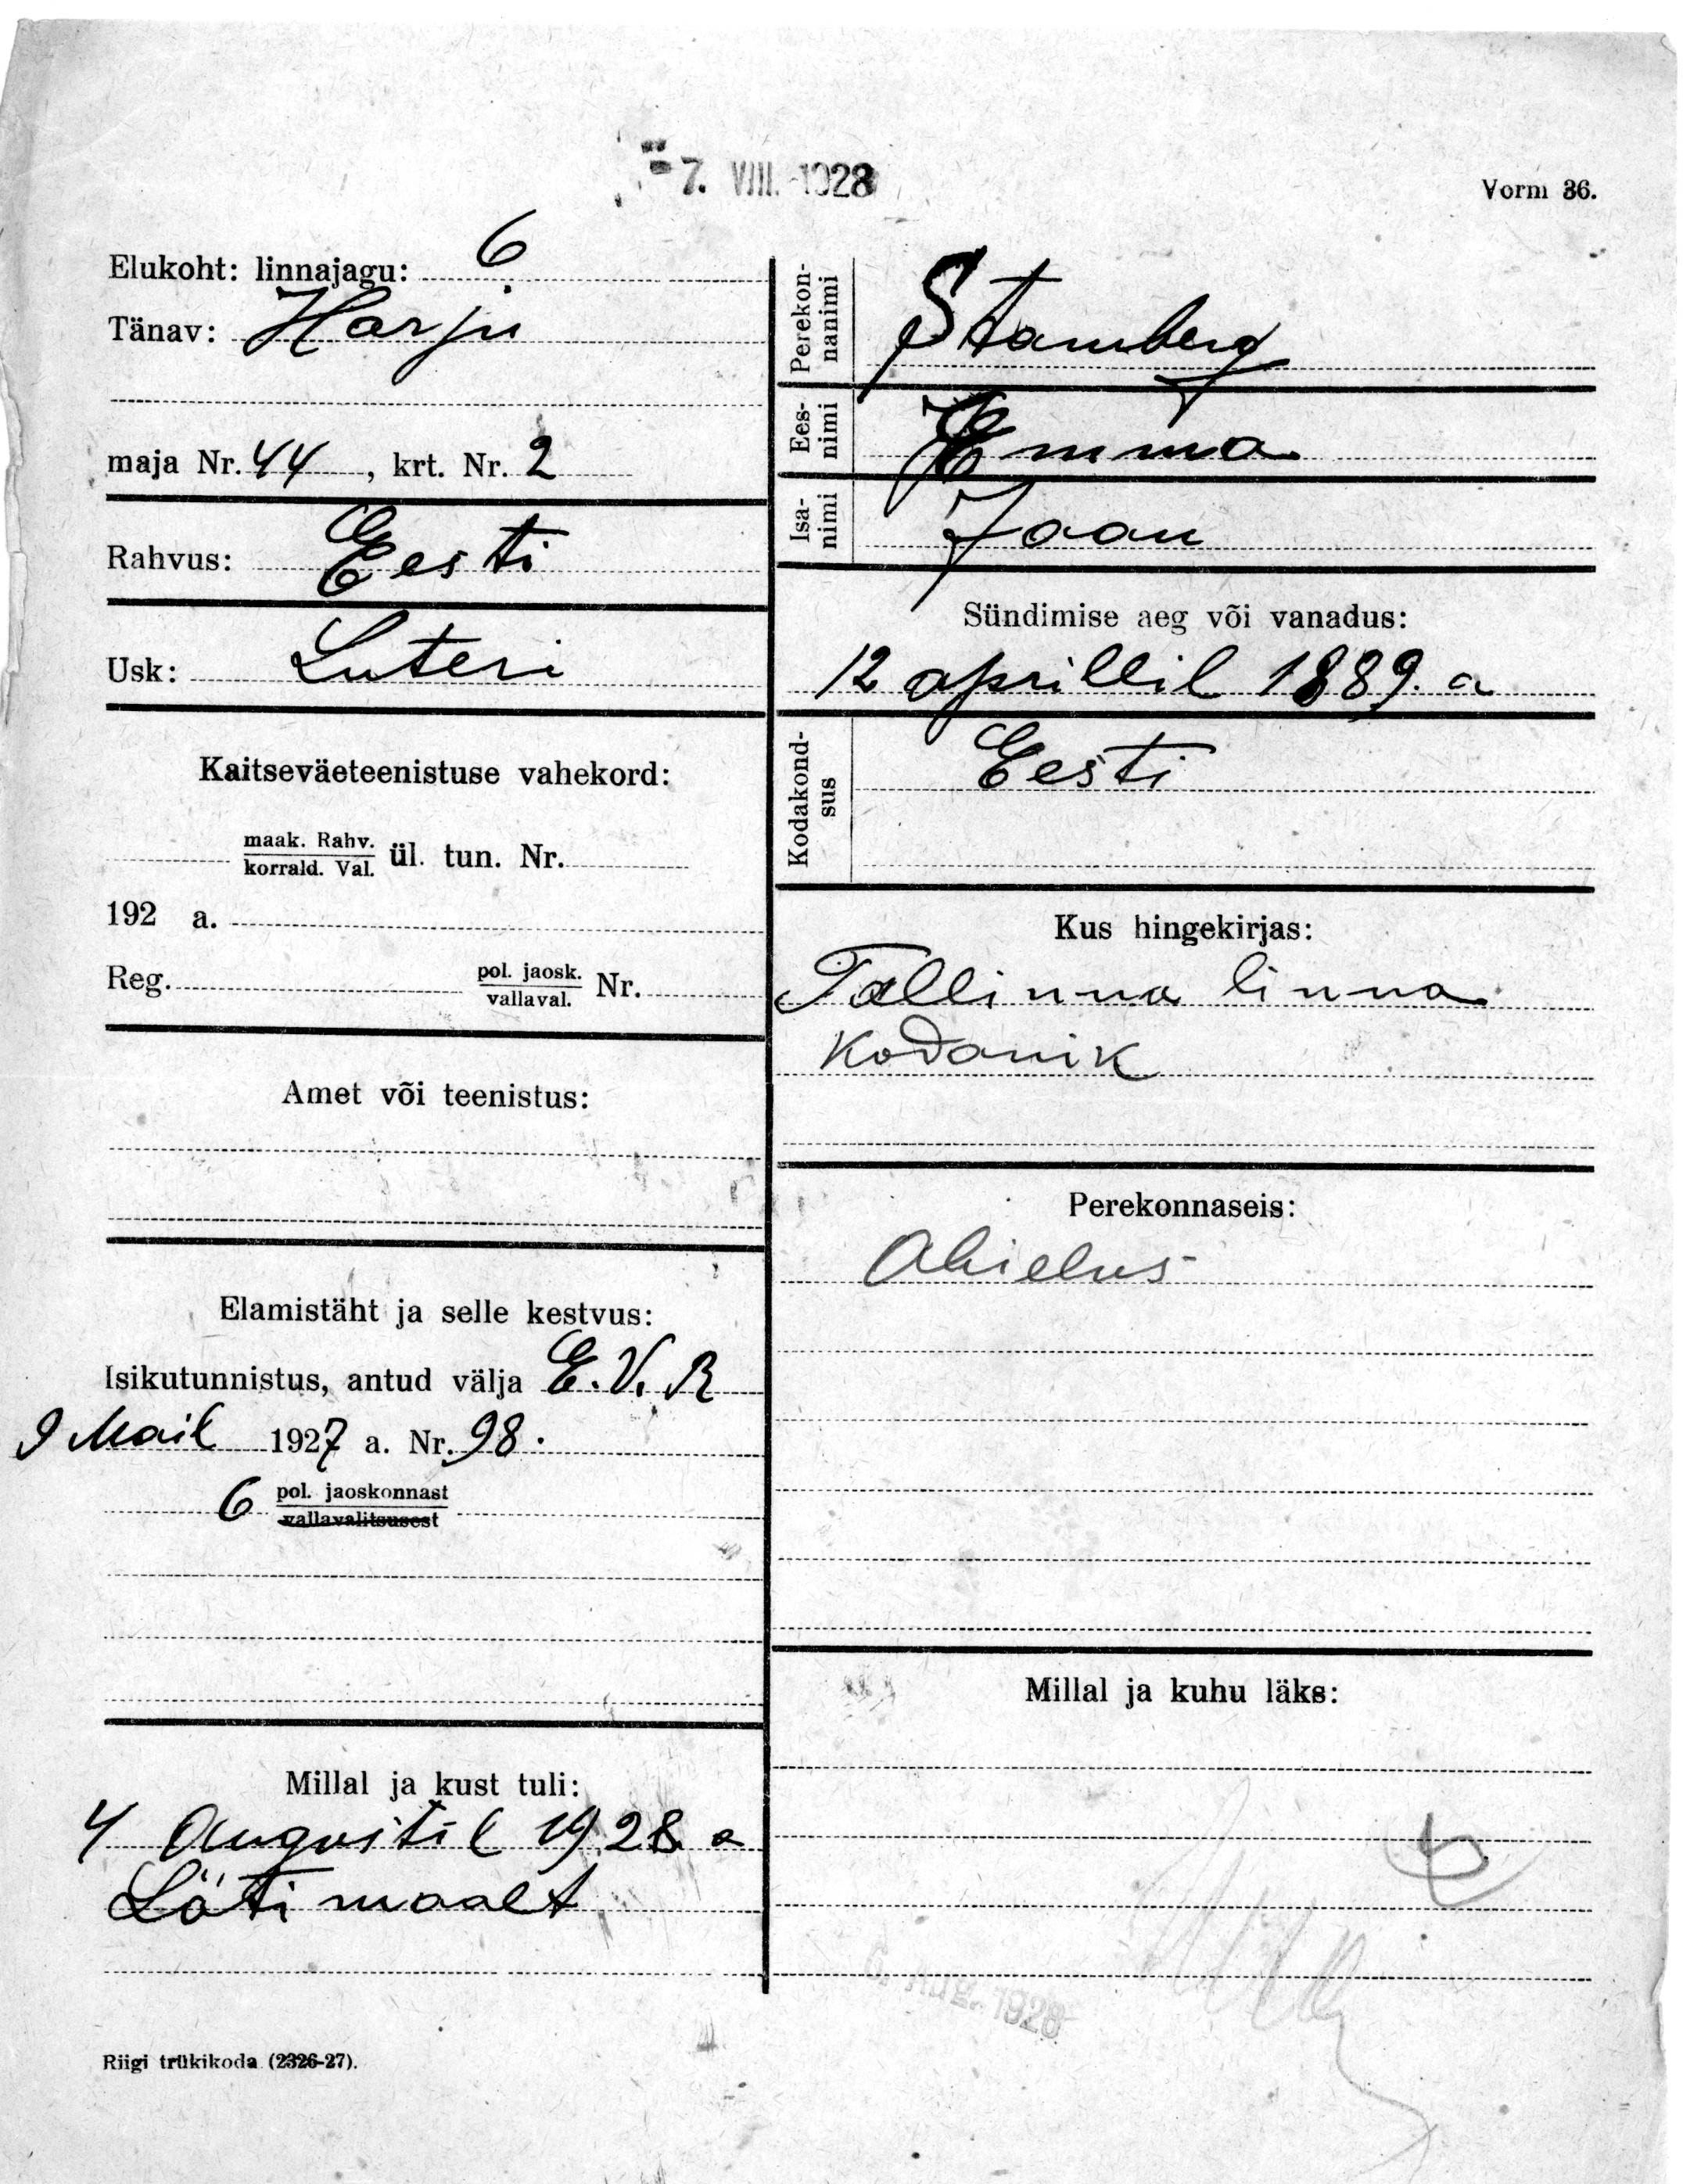 7. VIII. 1928
Vorm 36.
Elukoht: linnajagu: 6
Tänav: Harju
maja Nr. 44, krt. Nr. 2
Rahvus: Eesti
Usk: Luteri
Kaitseväeteenistuse vahekord:
maak. Rahv.
korrald. Val. ül. tun. Nr.
192 a.
Reg. pol. jaosk.
vallaval. Nr.
Amet või teenistus:
Elamistäht ja selle kestvus:
Isikutunnistus, antud välja E. V. R
9 Mail 1927 a. Nr. 98.
6 pol. jaoskonnast
vallavalitsusest
Millal ja kust tuli:
4 Augustil 1928 a
Läti maalt
Riigi trükikoda (2326-27).
Perekon-
nanimi
Stamberg
Ees-
nimi
Emma
Isa-
nimi
Jaan
Sündimise aeg või vanadus:
12 aprillil 1889. a
Kodakond-
sus
Eesti
Kus hingekirjas:
Tallinna linna
kodanik
Perekonnaseis:
Abielus
Millal ja kuhu läks:
6. Aug. 1928